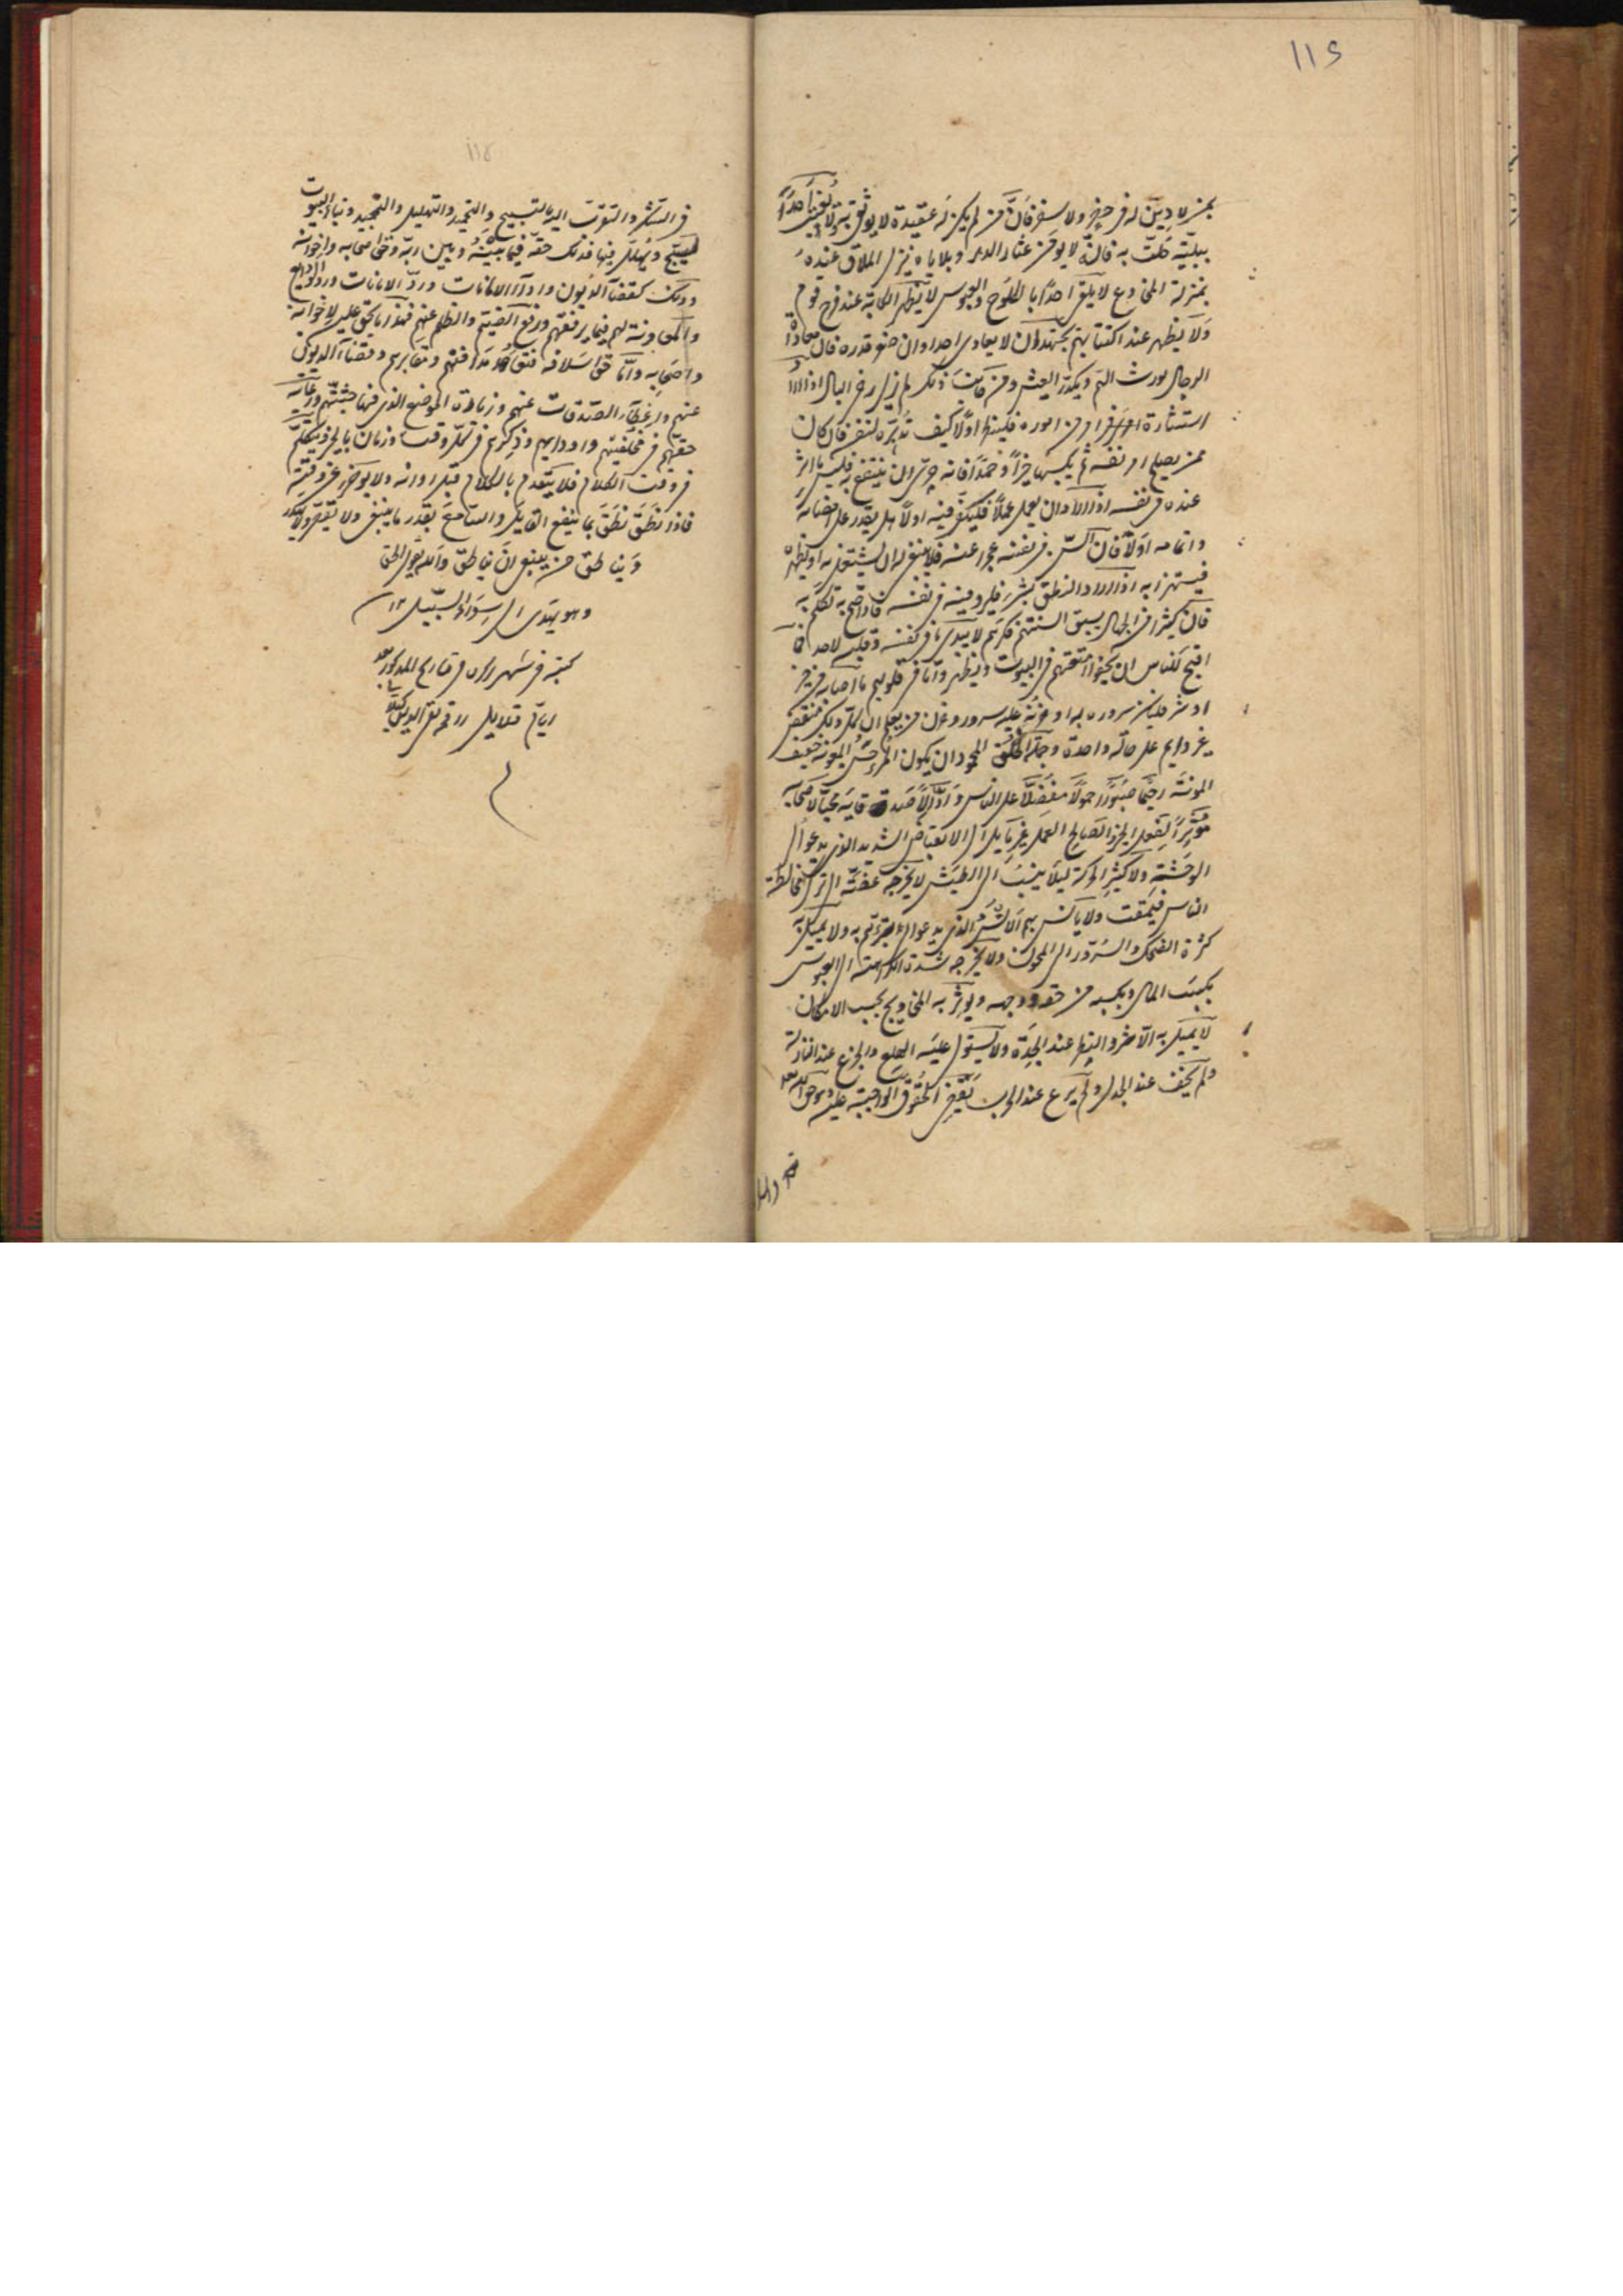 ١١٤
بمن لا دين له في حضر ولا سفر فان من لم يكن له عقيدة لا يوثق به ولا يعير احدًا
ببليّة حلّت به فانه لا يؤمن عثار الدهر وبلاياه ينزل الملاق عنده
بمنزلة المخادع لا يلق احدًا بالكلوح والعبوس لا يظهر الكآبة عند فرح قوم
ولا يظهر عند اكتئابهم يجتهد ان لا يعادي احدا وان صغر قدره فان معاداة
الرجال يورث الهم ويكدر العيش ومن كانت ذلك لم يزل رخي البال اذا اراد
استشارة في امر من اموره فلينظر اولًا كيف تدبره لنفسه فان كان
ممن يصلح امر نفسه ثم يكسبها خيرًا وحمدًا فانه حري ان ينتفع به فليس باثر
عنده من نفسه اذا اراد ان يعمل عملًا فليفكر فيه اولًا هل يقدر على امضائه
واتمامه اولًا فان احسّ في نفسه عجزا عنه فلا ينبغي له ان يشتغل به او يظهره
فيستهزأ به اذا اراد النطق بشيء فليروّ فيه في نفسه فاذا صح به تكلم به
فان كثيرا من الجهال يسبق السنتهم فكرهم لا يبدي ما في نفسه وقلبه لاحد فما
اقبح للناس ان يخفوا امتعتهم في البيوت ويظهروا ما في قلوبهم ما اصابه من خير
او شر فليكن سروره به او حزنه عليه سرور وحزن من يعلم ان كل ذلك منقض
غير دايم على حالة واحدة وجملة الخلق المحمود ان يكون المرء حسن المعونة خفيف
المؤنة رحيمًا صبورًا حمولًا مفضلًا على الناس وادًّا لاصدقائه محبًا لاصحابه
مؤثرًا لفعل الخير والصالح العمل غير مايل الى الانقباض الشديد الذي يدعو الى
الوحشة ولا كثير الحركة ليلا ينسب الى الطيش لا يخرجه عفته الى ترك مخالطة
الناس فيمقت ولا يأنس بهم الانس الذي يدعو الى اجترائهم به ولا يميل به
كثرة الضحك والسرور الى المجون ولا يخرجه شدة الكراهة الى العبوس
يكسب المال ويكسبه من حقه ووجهه ويؤثر به المحاويج بحسب الامكان
لا يميل به الاشر والبطر عند الجدة ولا يستولي عليه الهلع والجزع عند النازلة
ولم يخف عند الجدل ولم يرع عند الحرب يقضي الحقوق الواجبة عليه وهو حق الله تعالى
في التشكر والتقرب اليه بالتسبيح والتحميد والتهليل والتمجيد وبناء البيوت
ليسبح ويهلل فيها فذلك حقه فيما بينه وبين ربه وحق اصحابه واخوانه
وذلك كقضاء الديون واداء الامانات وردّ الامانات وردّ الودايع
والمعاونة لهم فيما يرفعهم ورفع الضيم والظلم عنهم فهذا ما يحق عليه لاخوانه
واصحابه وامّا حق اسلافه فتعهد مدافنهم ومقابرهم وقضاء الديون
عنهم واعطاء الصدقات عنهم وزيارة الموضع الذي فيها جثثهم ورعاية
حقهم في مخلفيهم واودايهم وذكرهم في كل وقت وزمان بالخير ويتكلم
في وقت الكلام فلا يتقدم بالكلام قبل اوانه ولا يؤخره عن وقته
فاذا نطق نطق بما ينفع القايل والسامع بقدر ما ينبغي ولا يقصر ولا يكثر
ويناطق من ينبغي ان يناطق والله يقول الحق
وهو يهدي الى سواء السبيل ١٢
كتبه في شهر
ايام قلايل